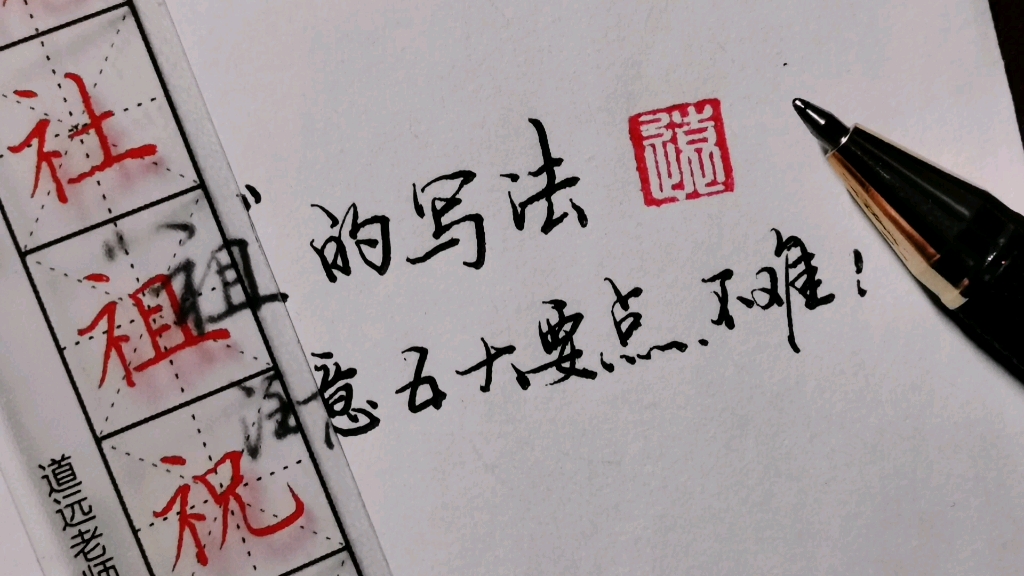 社
祖
祝
道远老师
“祖”的写法
注意五大要点、不难！
遠